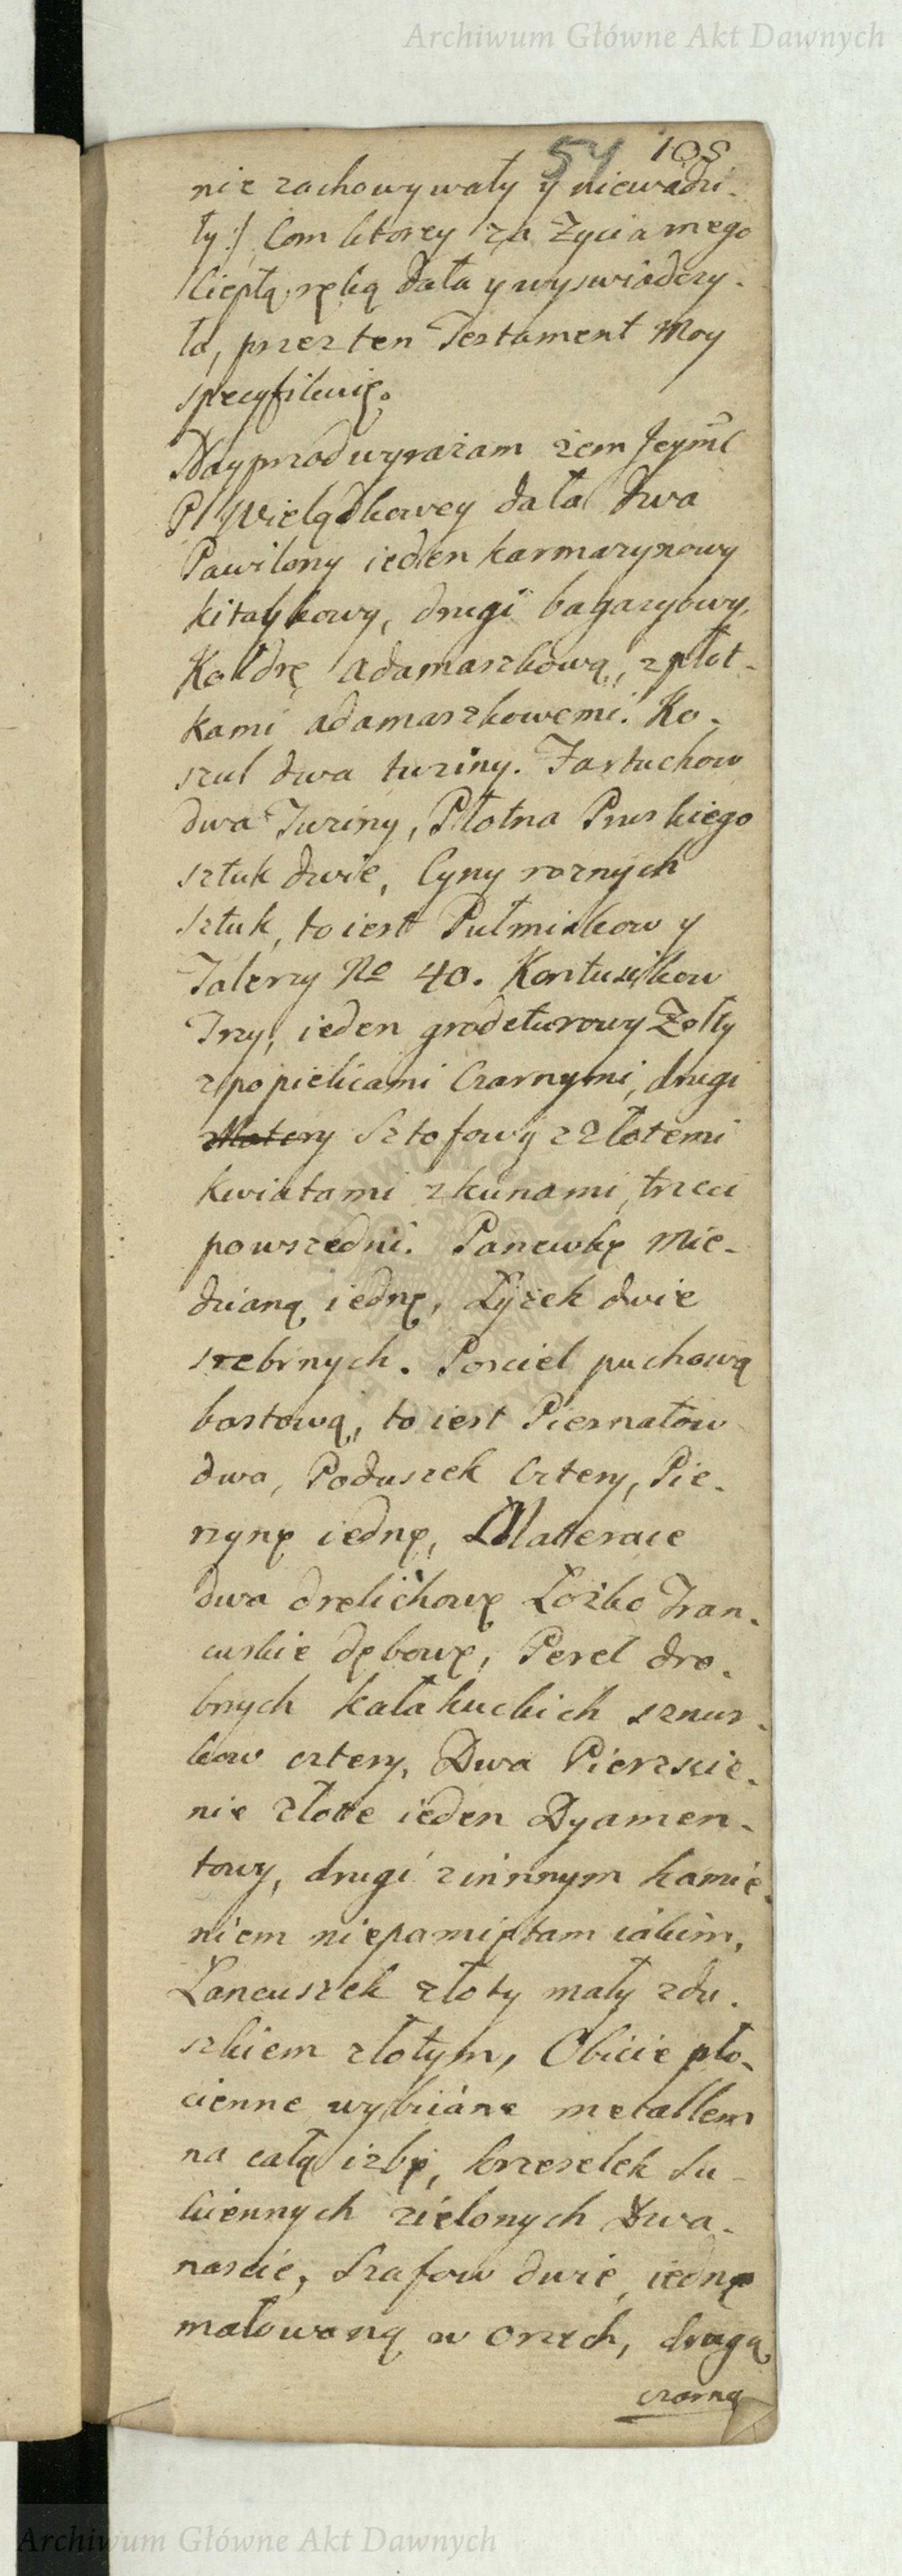 Archiwum Główne Akt Dawnych
54 108
nie zachowywały y niewadzi-
ły :/ Com ktorey za Zycia mego
Ciepłą ręką dała y wyswiadczy-
ła, przez ten Testament Moy
specyfikuię.
Nayprzod wyrażam żem Jeymć
P Wielądkowey dała dwa
Pawilony ieden karmazynowy
kitaykowy, drugi bagazyowy,
Kołdrę adamaszkową, z płot-
kami adamaszkowemi. Ko-
szul dwa tuziny. Fartuchow
dwa Tuziny, Płotna Pruskiego
sztuk dwie, Cyny roznych
sztuk, to iest Pułmiskow y
Talerzy No 40. Kontusikow
Trzy, ieden grodeturowy Zołty
z popielicami Czarnymi, drugi
z Matery Sztofowy z Złotemi
kwiatami z kunami, trzeci
powszedni. Panewkę Mie-
dzianą iednę, Łyżek dwie
srebrnych. Posciel puchową
bartową, to iest Piernatow
dwa, Poduszek Cztery, Pie-
rzynę iednę, Materace
dwa drelichowe Łożko Fran-
cuskie dębowe, Pereł dro-
bnych kałakuckich sznur-
kow cztery, Dwa Pierscie-
nie złote ieden Dyamen-
towy, drugi z innym kamie-
niem niepamiętam iakim,
Łancuszek złoty mały z du-
szkiem złotym, Obicie pło-
cienne wybiiane metallem
na całą izbę, krzesełek Su-
kiennych zielonych Dwa-
nascie, Szafow dwie, iednę
malowaną w orzech, drugą
czarną
Archiwum Główne Akt Dawnych